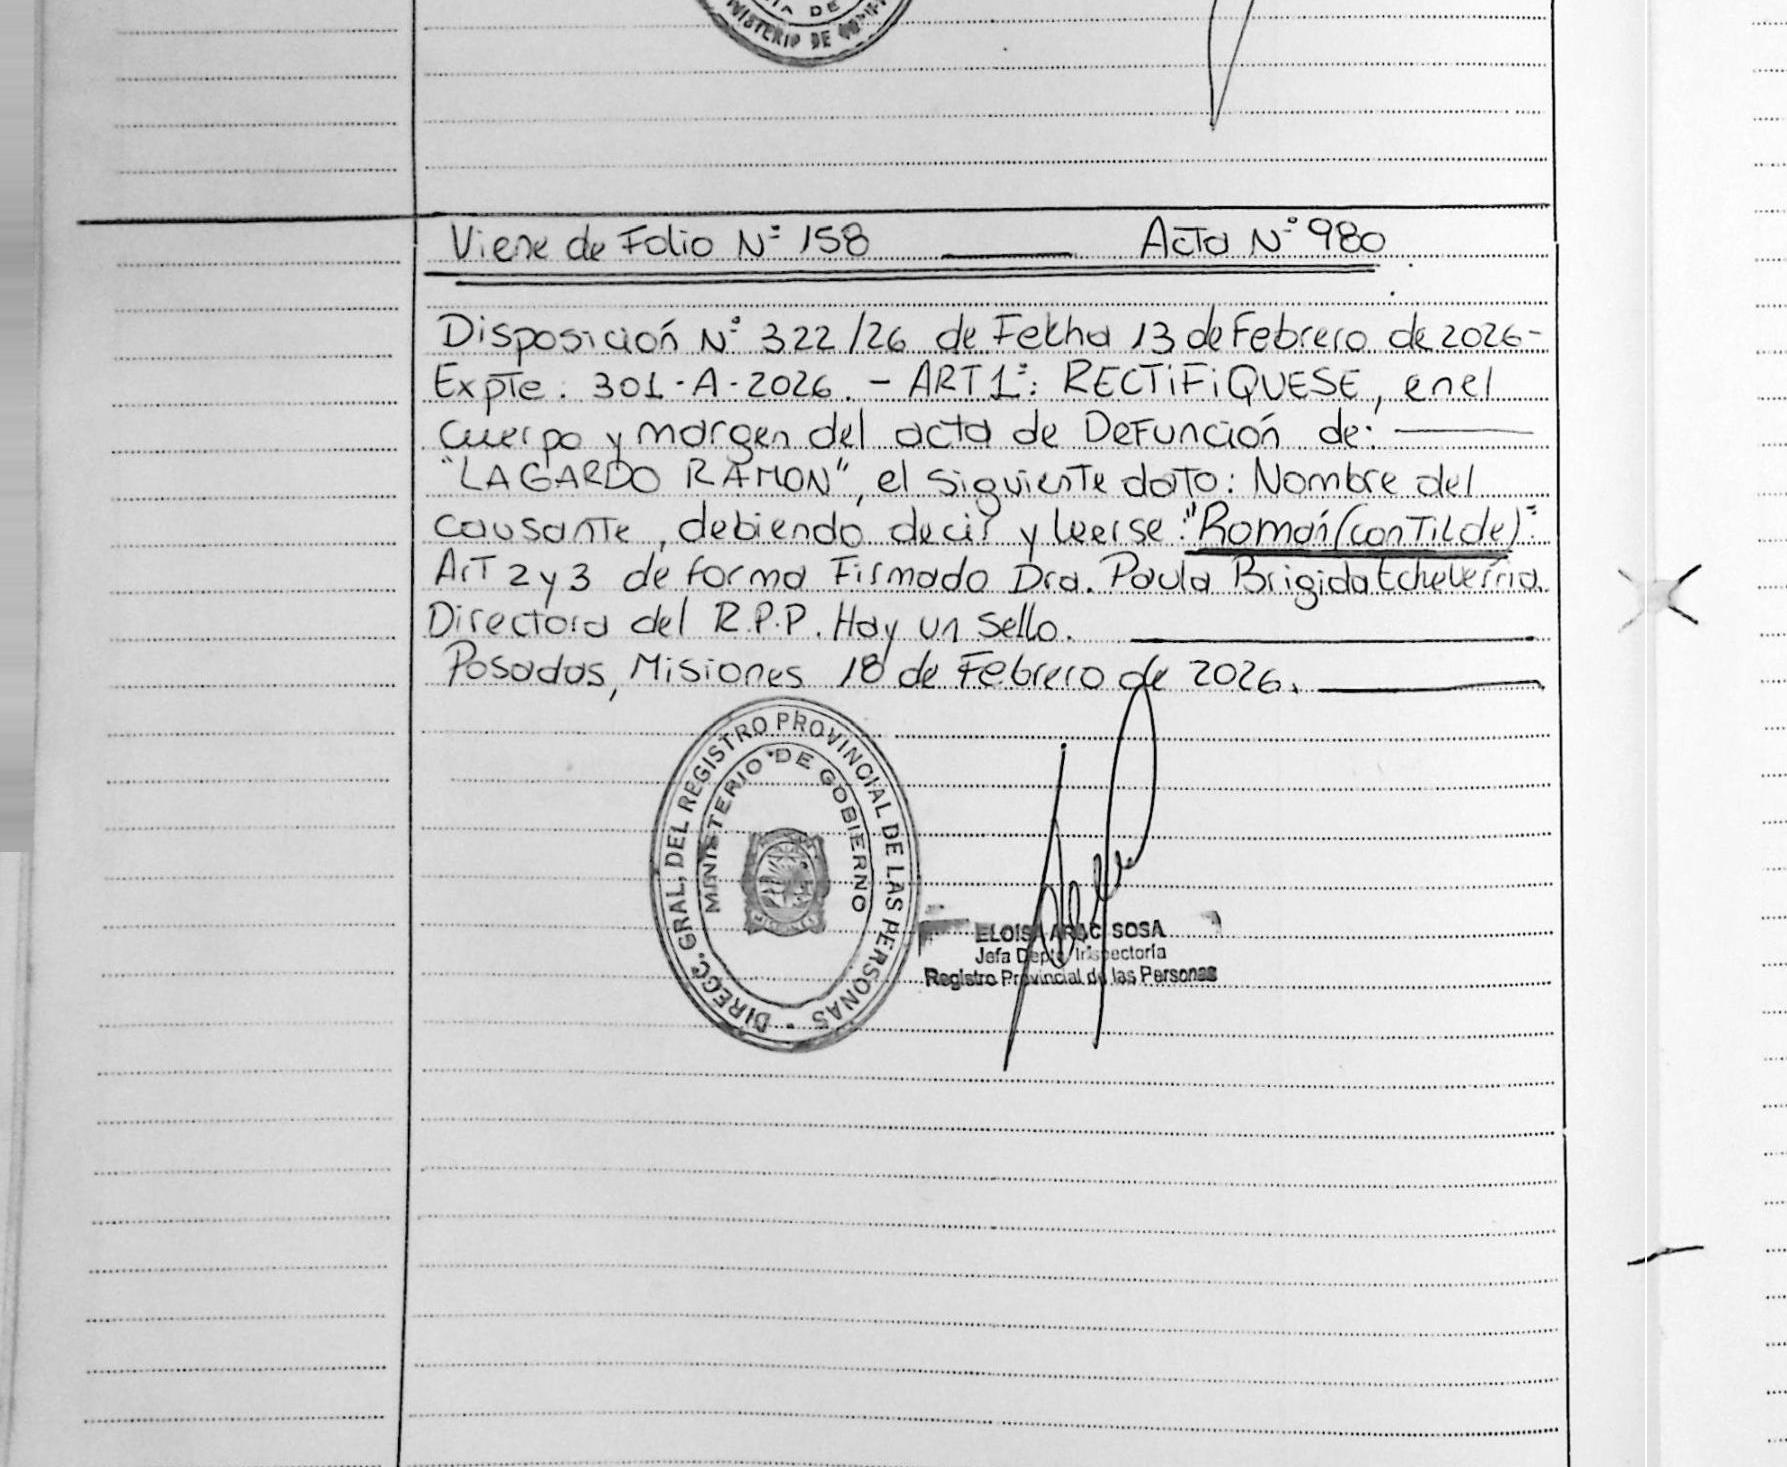 MINISTERIO DE
Viene de Folio N° 158 Acta N° 980
Disposición N° 322/26 de Fekha 13 de Febrero de 2026-
Expte: 301-A-2026. - ART 1°: RECTIFIQUESE, en el
cuerpo y margen del acta de Defunción de:
"LAGARDO RAMON", el siguiente dato: Nombre del
causante, debiendo decir y leerse: "Román (con Tilde)".
Art 2 y 3 de forma Firmado Dra. Paula Brigida Echeverria.
Directora del R.P.P. Hay un sello.
Posadas, Misiones 18 de Febrero de 2026.
DIRECC. GRAL. DEL REGISTRO PROVINCIAL DE LAS PERSONAS
MINISTERIO DE GOBIERNO
ELOISA SOSA
Jefa Depto. Inspectoría
Registro Provincial de las Personas